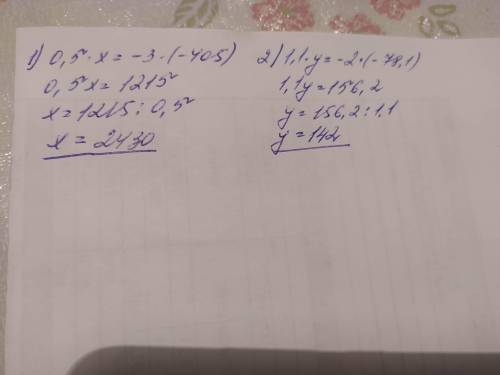 1) 0,5·x = -3·(-405)
0,5x = 1215
x = 1215 : 0,5
x = 2430
2) 1,1·y = -2·(-78,1)
1,1y = 156,2
y = 156,2 : 1,1
y = 142